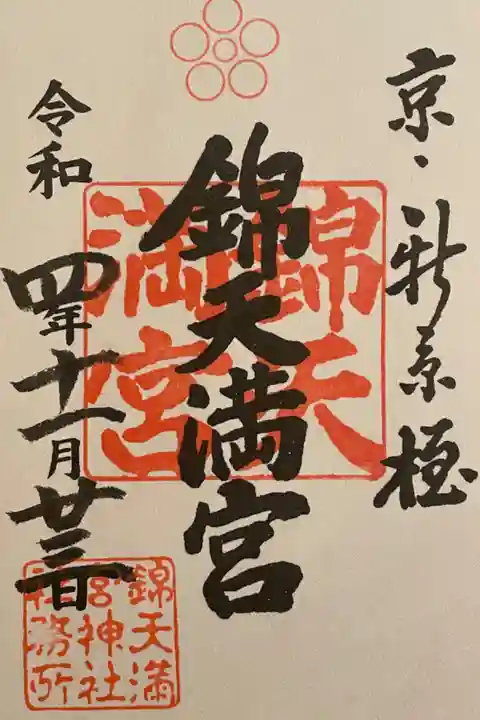 京・新京極
錦天満宮
錦天
満宮
令和四年十一月廿三日
錦天満
宮神社
社務所